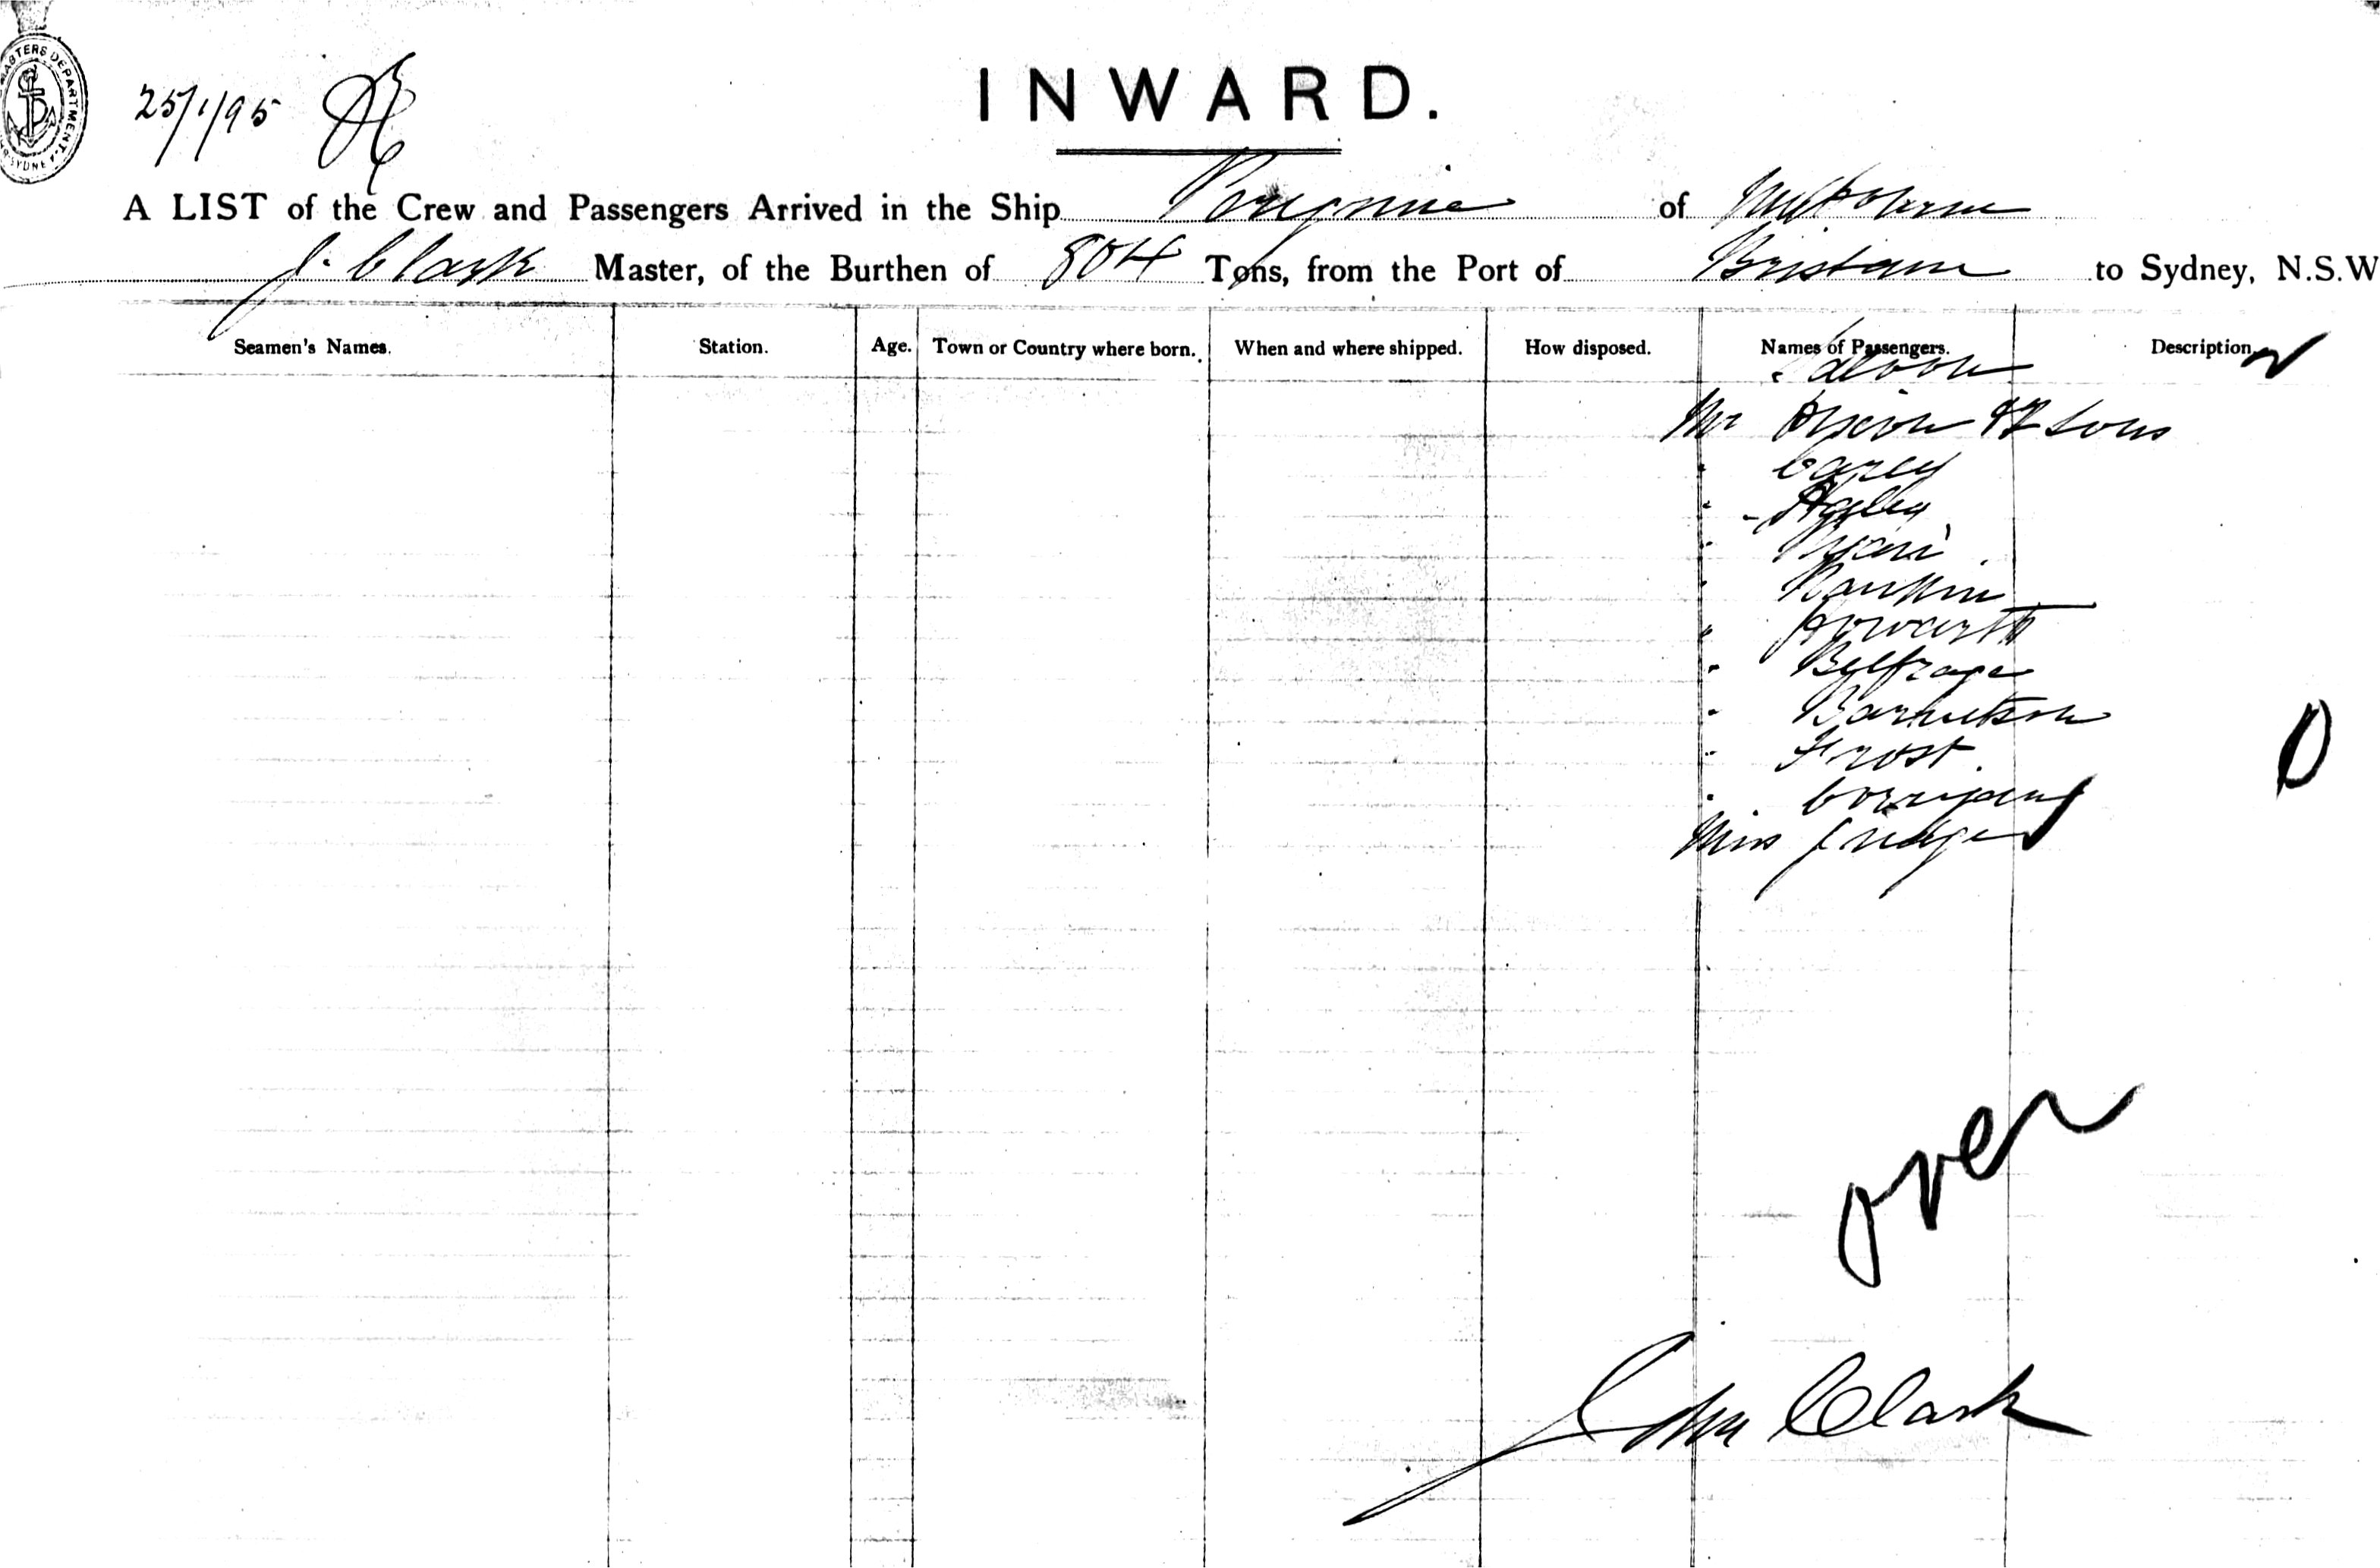 MASTERS DEPARTMENT SYDNEY
25/1/95
INWARD.
A LIST of the Crew and Passengers Arrived in the Ship Peregrine of Melbourne
J. Clark Master, of the Burthen of 804 Tons, from the Port of Brisbane to Sydney, N.S.W
Seamen's Names. Station. Age. Town or Country where born. When and where shipped. How disposed. Names of Passengers. Description
Saloon
Mr Dixon & 2 sons
" Carey
" Rankin
" Howarth
" Belfrage
" Barnetson
" Frost
" Corrigan
Miss Judge
over
John Clark